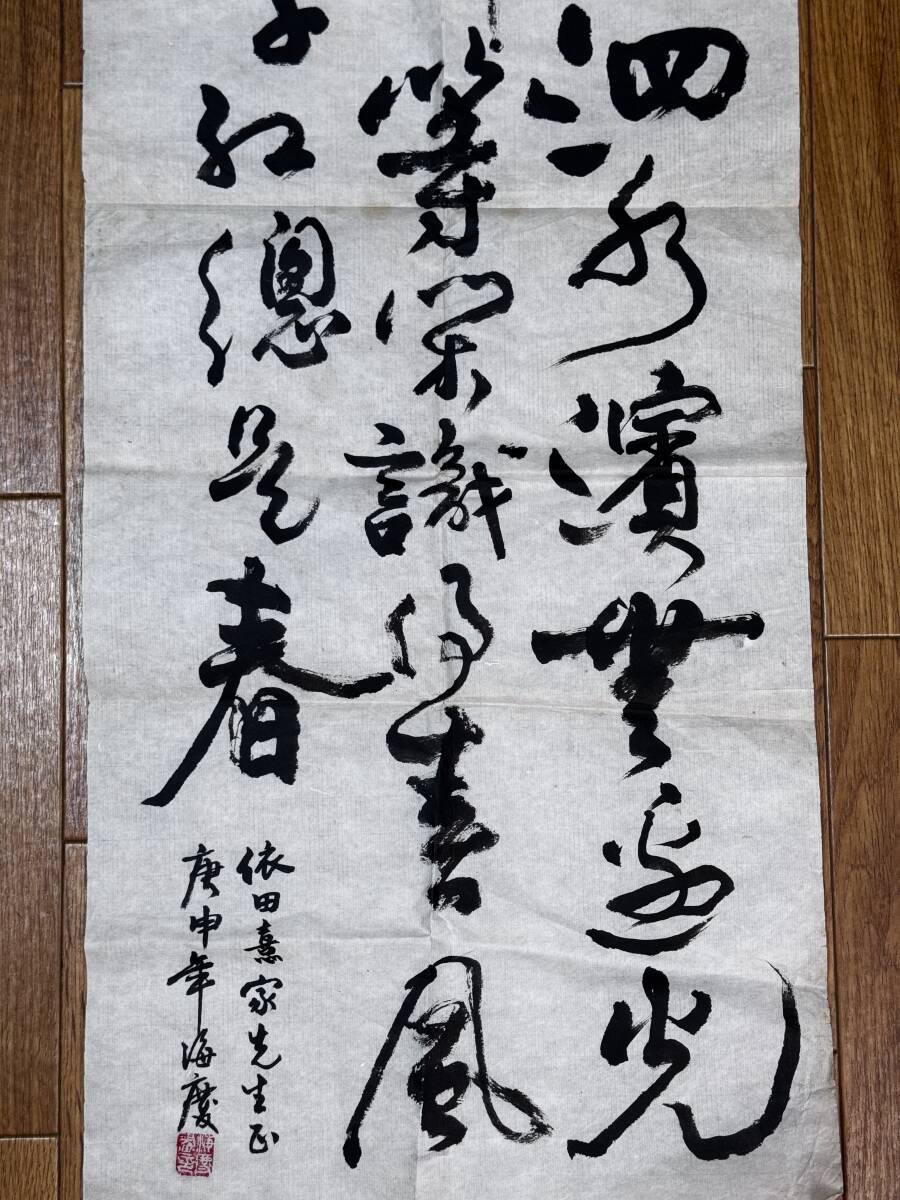 泗水濱無邊光
等閑識得春風
紅總是春
依田熹家先生正
庚申年海慶